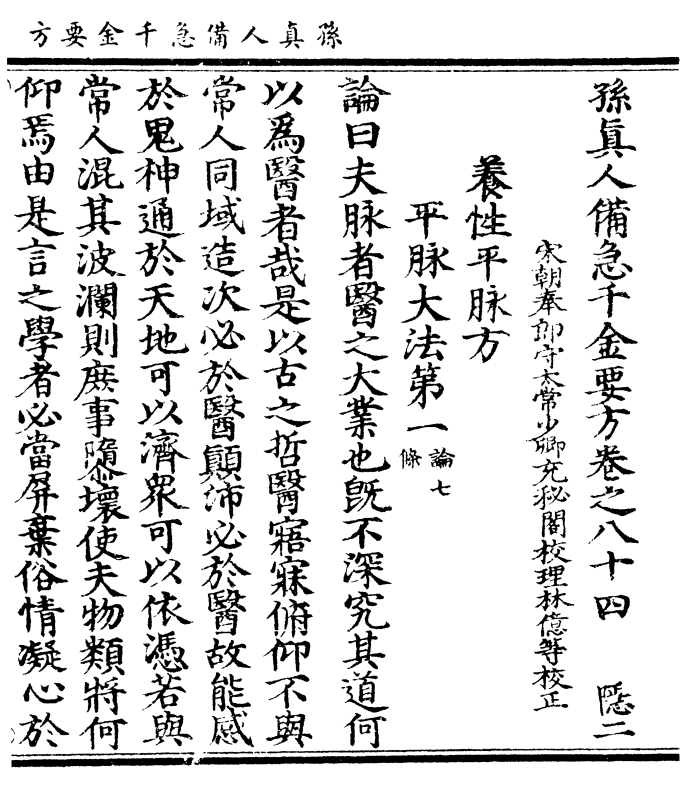 孫真人備急千金要方
孫真人備急千金要方卷之八十四　隠二
宋朝奉郎守太常少卿充秘閣校理林億等校正
養性平脉方
平脉大法第一論七條
論曰夫脉者醫之大業也既不深究其道何
以爲醫者哉是以古之哲醫寤寐俯仰不與
常人同域造次必於醫顛沛必於醫故能感
於鬼神通於天地可以濟衆可以依憑若與
常人混其波瀾則庶事隳壞使夫物類將何
仰焉由是言之學者必當屏棄俗情凝心於